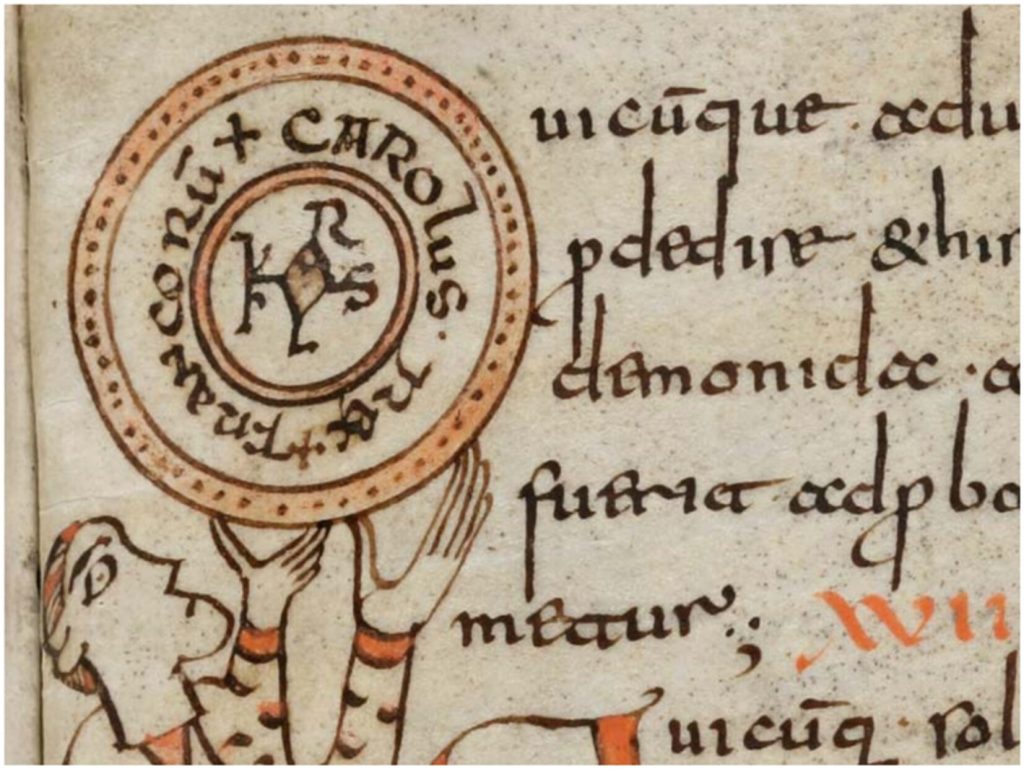 + CAROlus · REX + FRANCORŪ
KRLS
uicūque · adu
pdedire & hir
demonidα · a
fuerit adp bo
metur ;
XVII
uicūq · sol